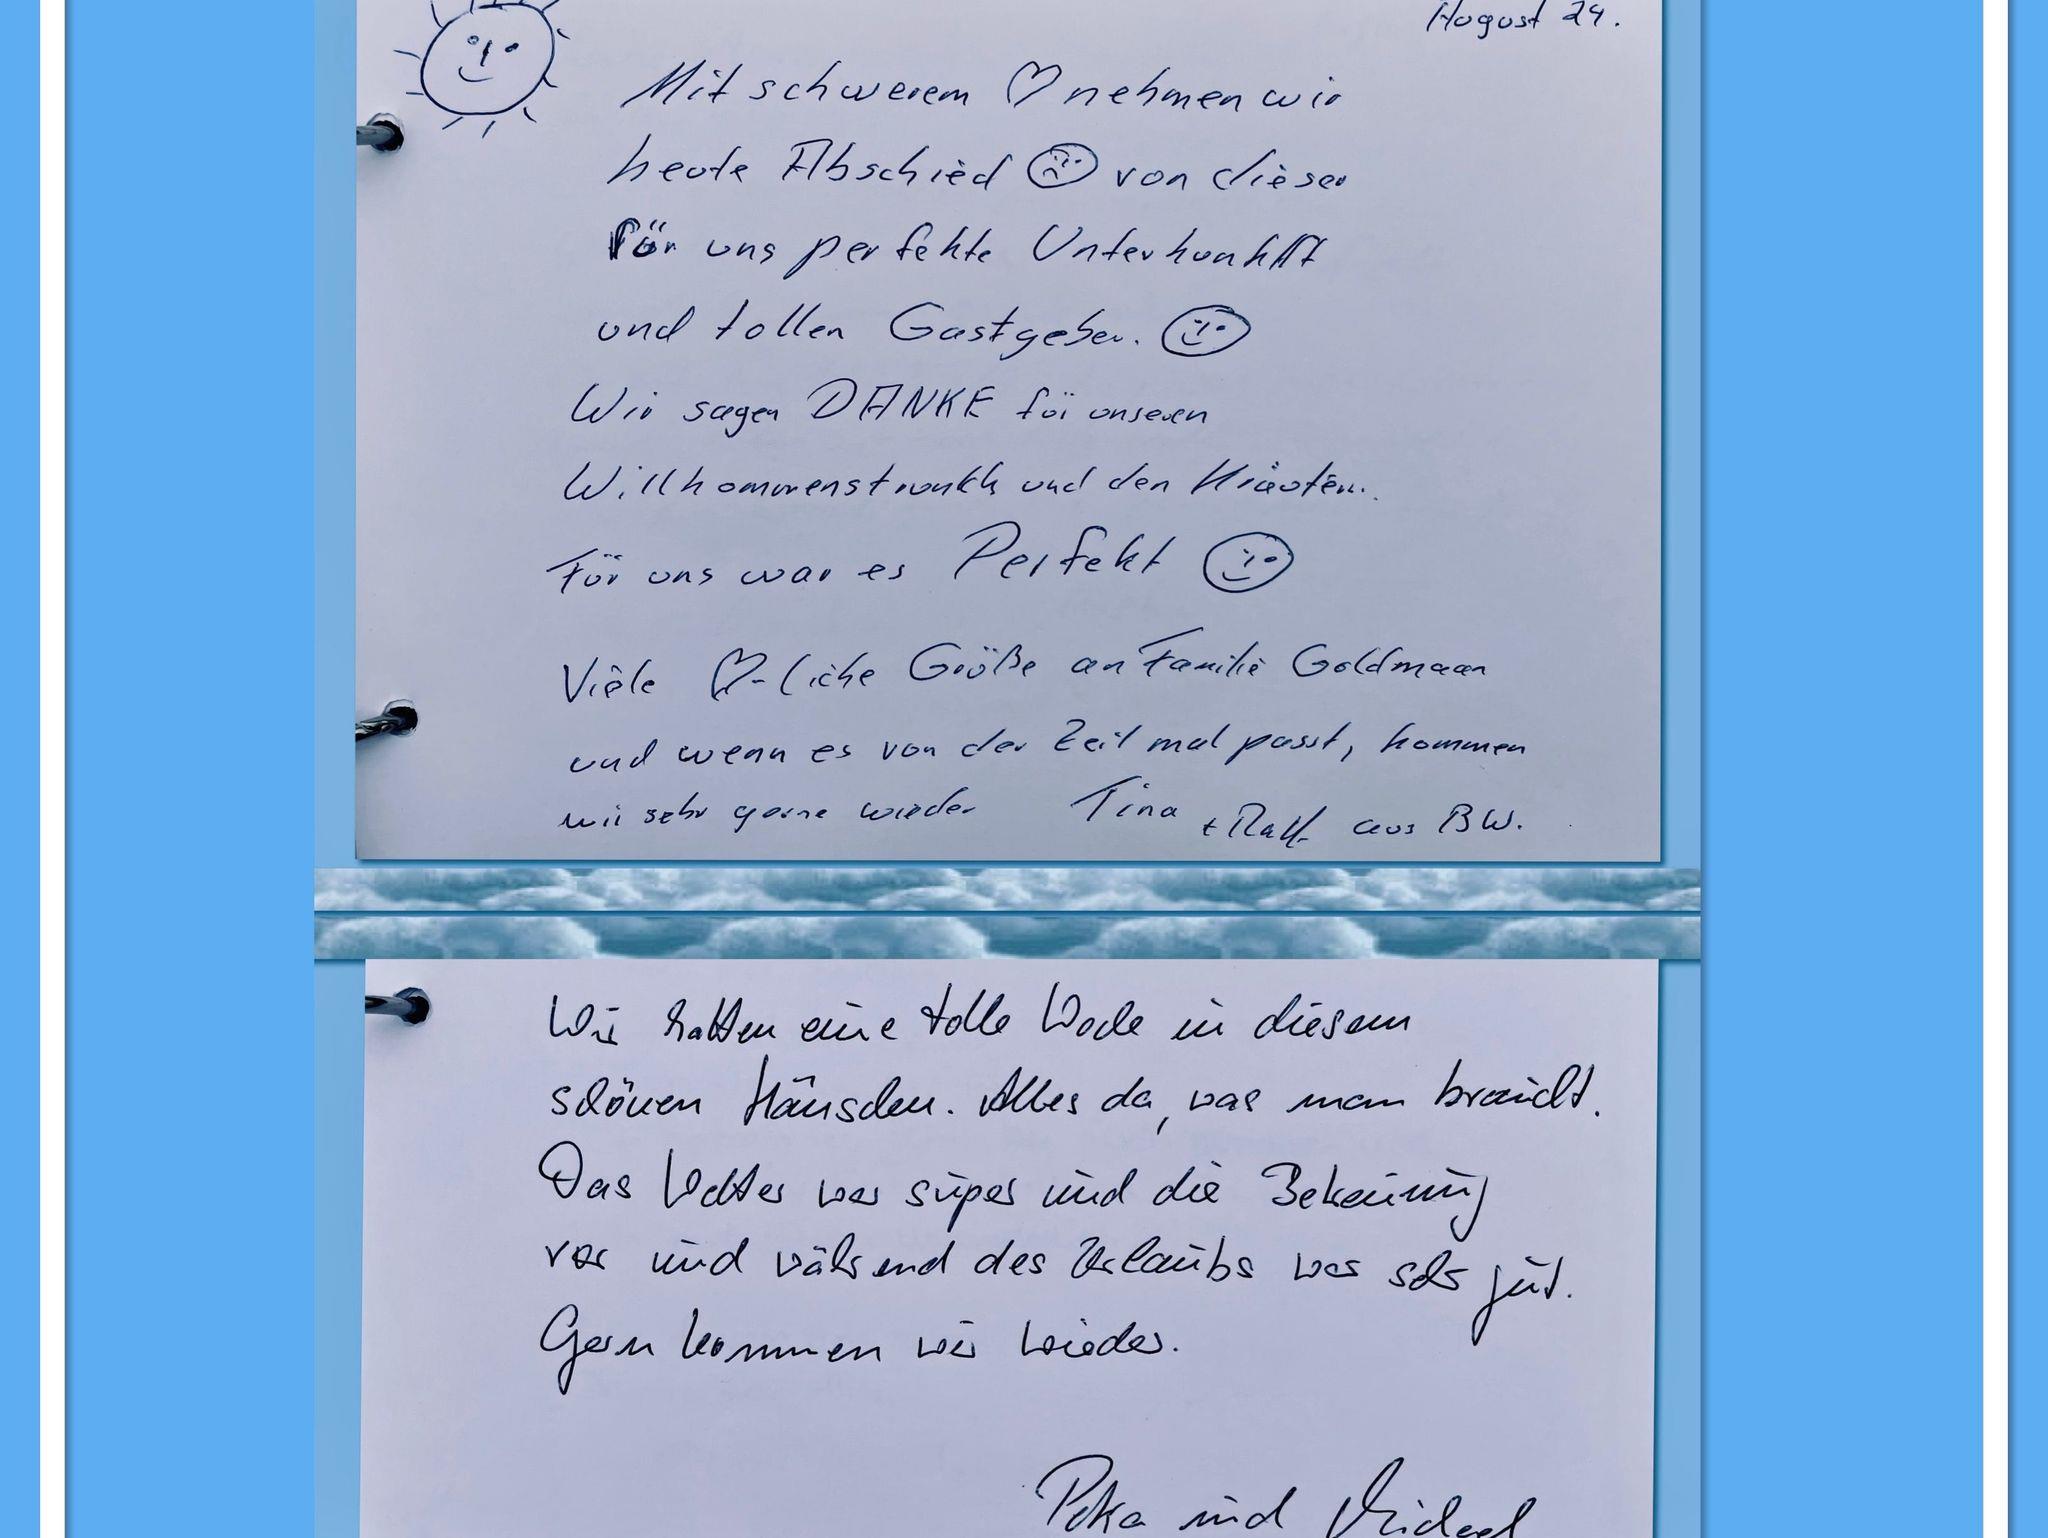 August 24.
Mit schwerem ♡ nehmen wir
heute Abschied ☹ von dieser
Für uns perfekte Unterkunft
und tollen Gastgeber. ☺
Wir sagen DANKE für unseren
Willkommenstrunk und den
Für uns war es Perfekt ☺
Viele ♡-liche Grüße an Familie Goldmann
und wenn es von der Zeit mal passt, kommen
wir sehr gerne wieder Tina + Ralf aus BW.
Wir hatten eine tolle Woche in diesem
schönen Häuschen. Alles da, was man braucht.
Das Wetter war super und die Betreuung
vor und während des Urlaubs war sehr gut.
Gern kommen wir wieder.
und Michael